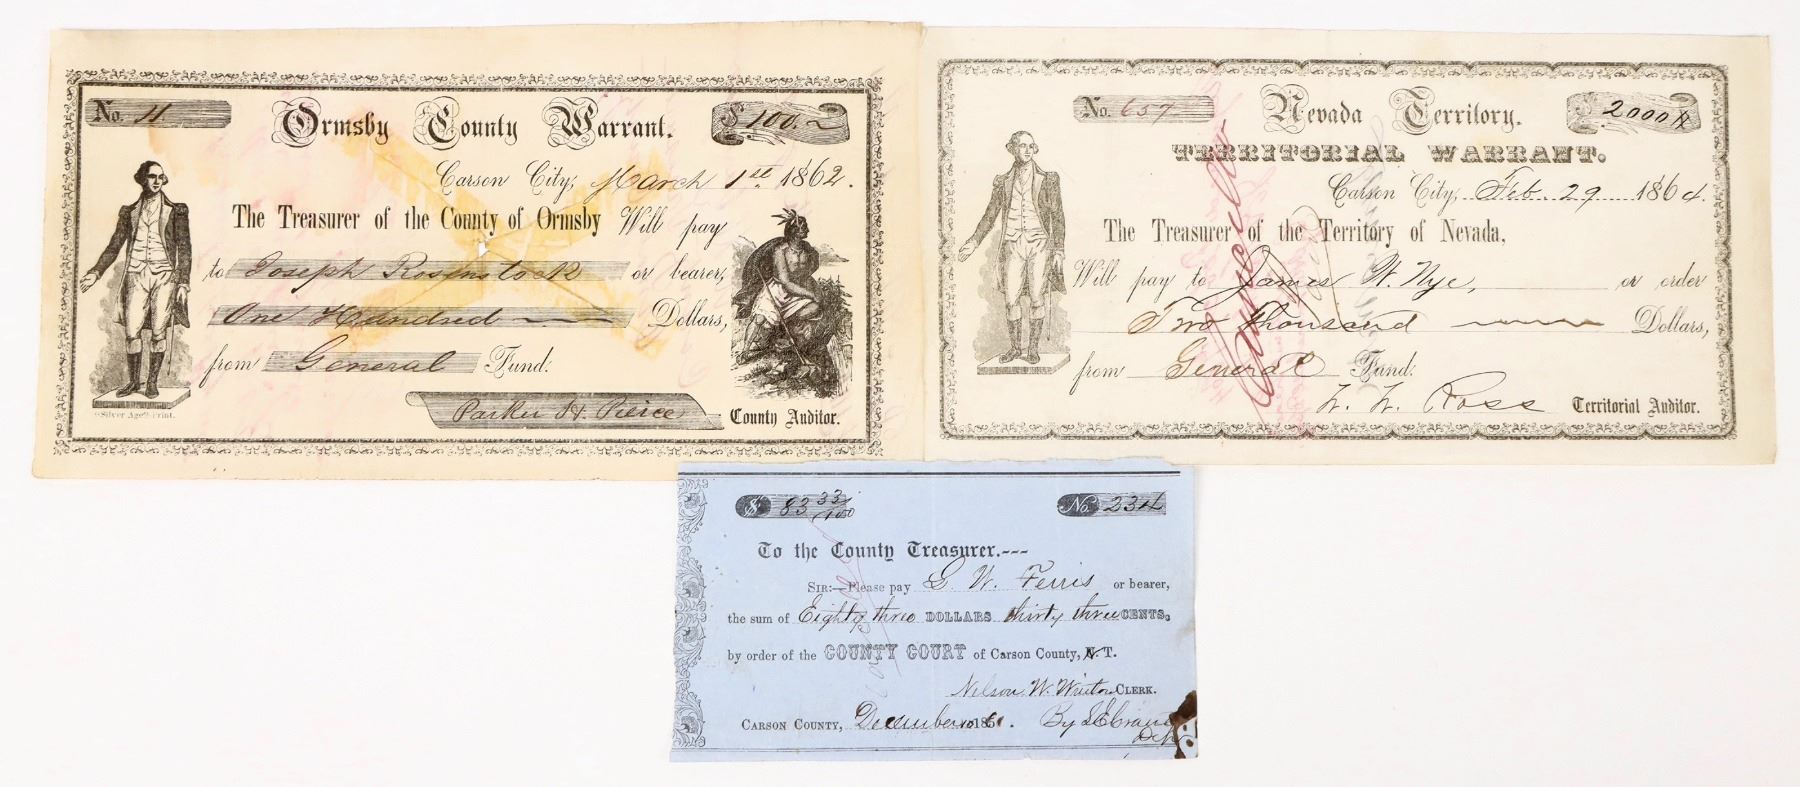 No. 11 Ormsby County Warrant. $ 100.
Carson City, March 1st 1862.
The Treasurer of the County of Ormsby Will pay
to Joseph Rosenstock or bearer,
One Hundred Dollars,
from General Fund:
Parker H. Pierce County Auditor.
"Silver Age" Print.
No. 657 Nevada Territory. $ 2000
TERRITORIAL WARRANT.
Carson City, Feb. 29 1864.
The Treasurer of the Territory of Nevada,
Will pay to James W. Nye, or order
Two thousand Dollars,
from General Fund:
W. W. Ross Territorial Auditor.
Cancelled
$ 83 33/100 No. 234
To the County Treasurer.---
SIR:—Please pay G. W. Ferris or bearer,
the sum of Eighty three DOLLARS thirty three CENTS,
by order of the COUNTY COURT of Carson County, N. T.
Nelson W. Winton CLERK.
CARSON COUNTY, December 1861. By
Dep